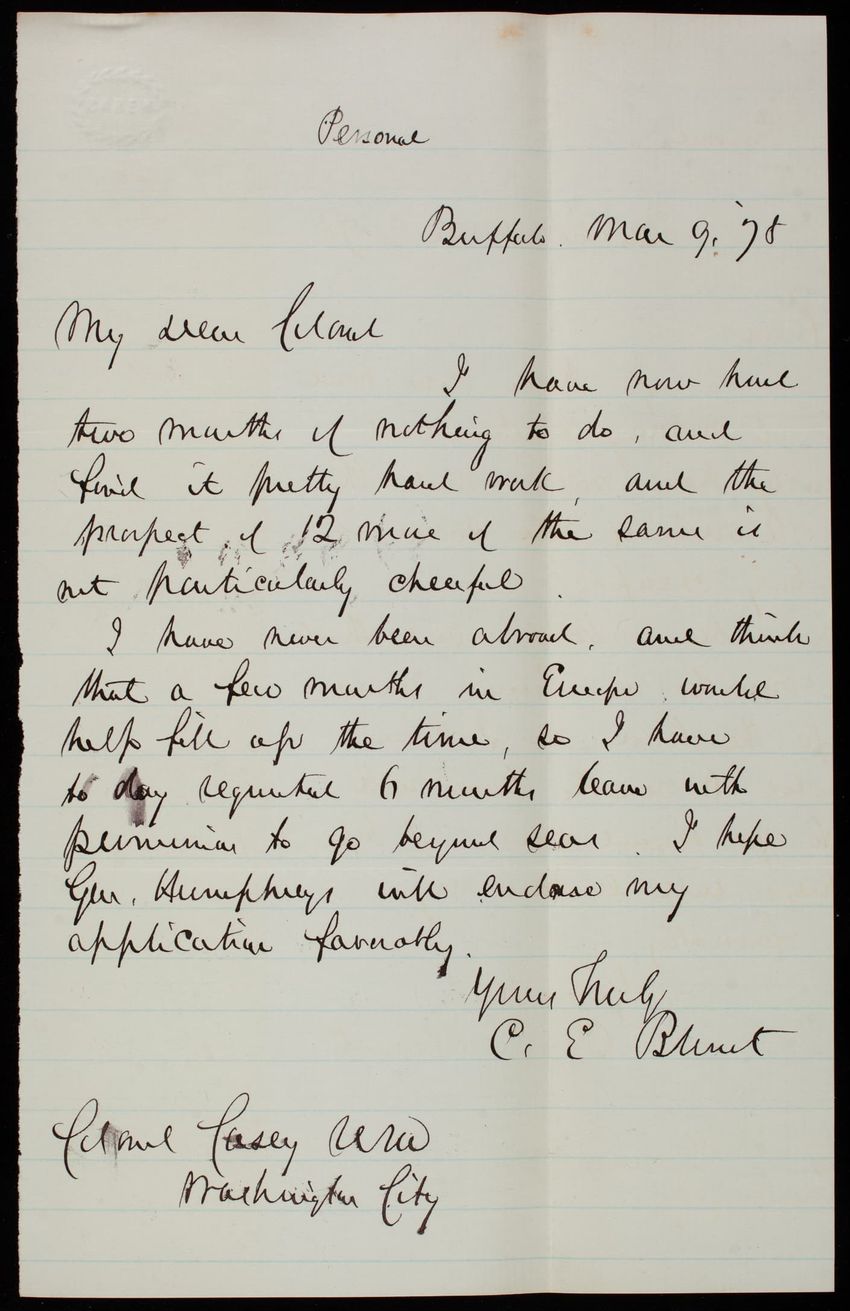 Personal
Buffalo. Mar 9. '78
My dear Colonel
I have now had
two months of nothing to do, and
find it pretty hard work, and the
prospect of 12 more of the same is
not particularly cheerful.
I have never been abroad, and think
that a few months in Europe would
help fill up the time, so I have
to day requested 6 months leave with
permission to go beyond seas. I hope
Gen. Humphreys will endorse my
application favorably.
Yours truly
C. E Blunt
Colonel Casey USA
Washington City